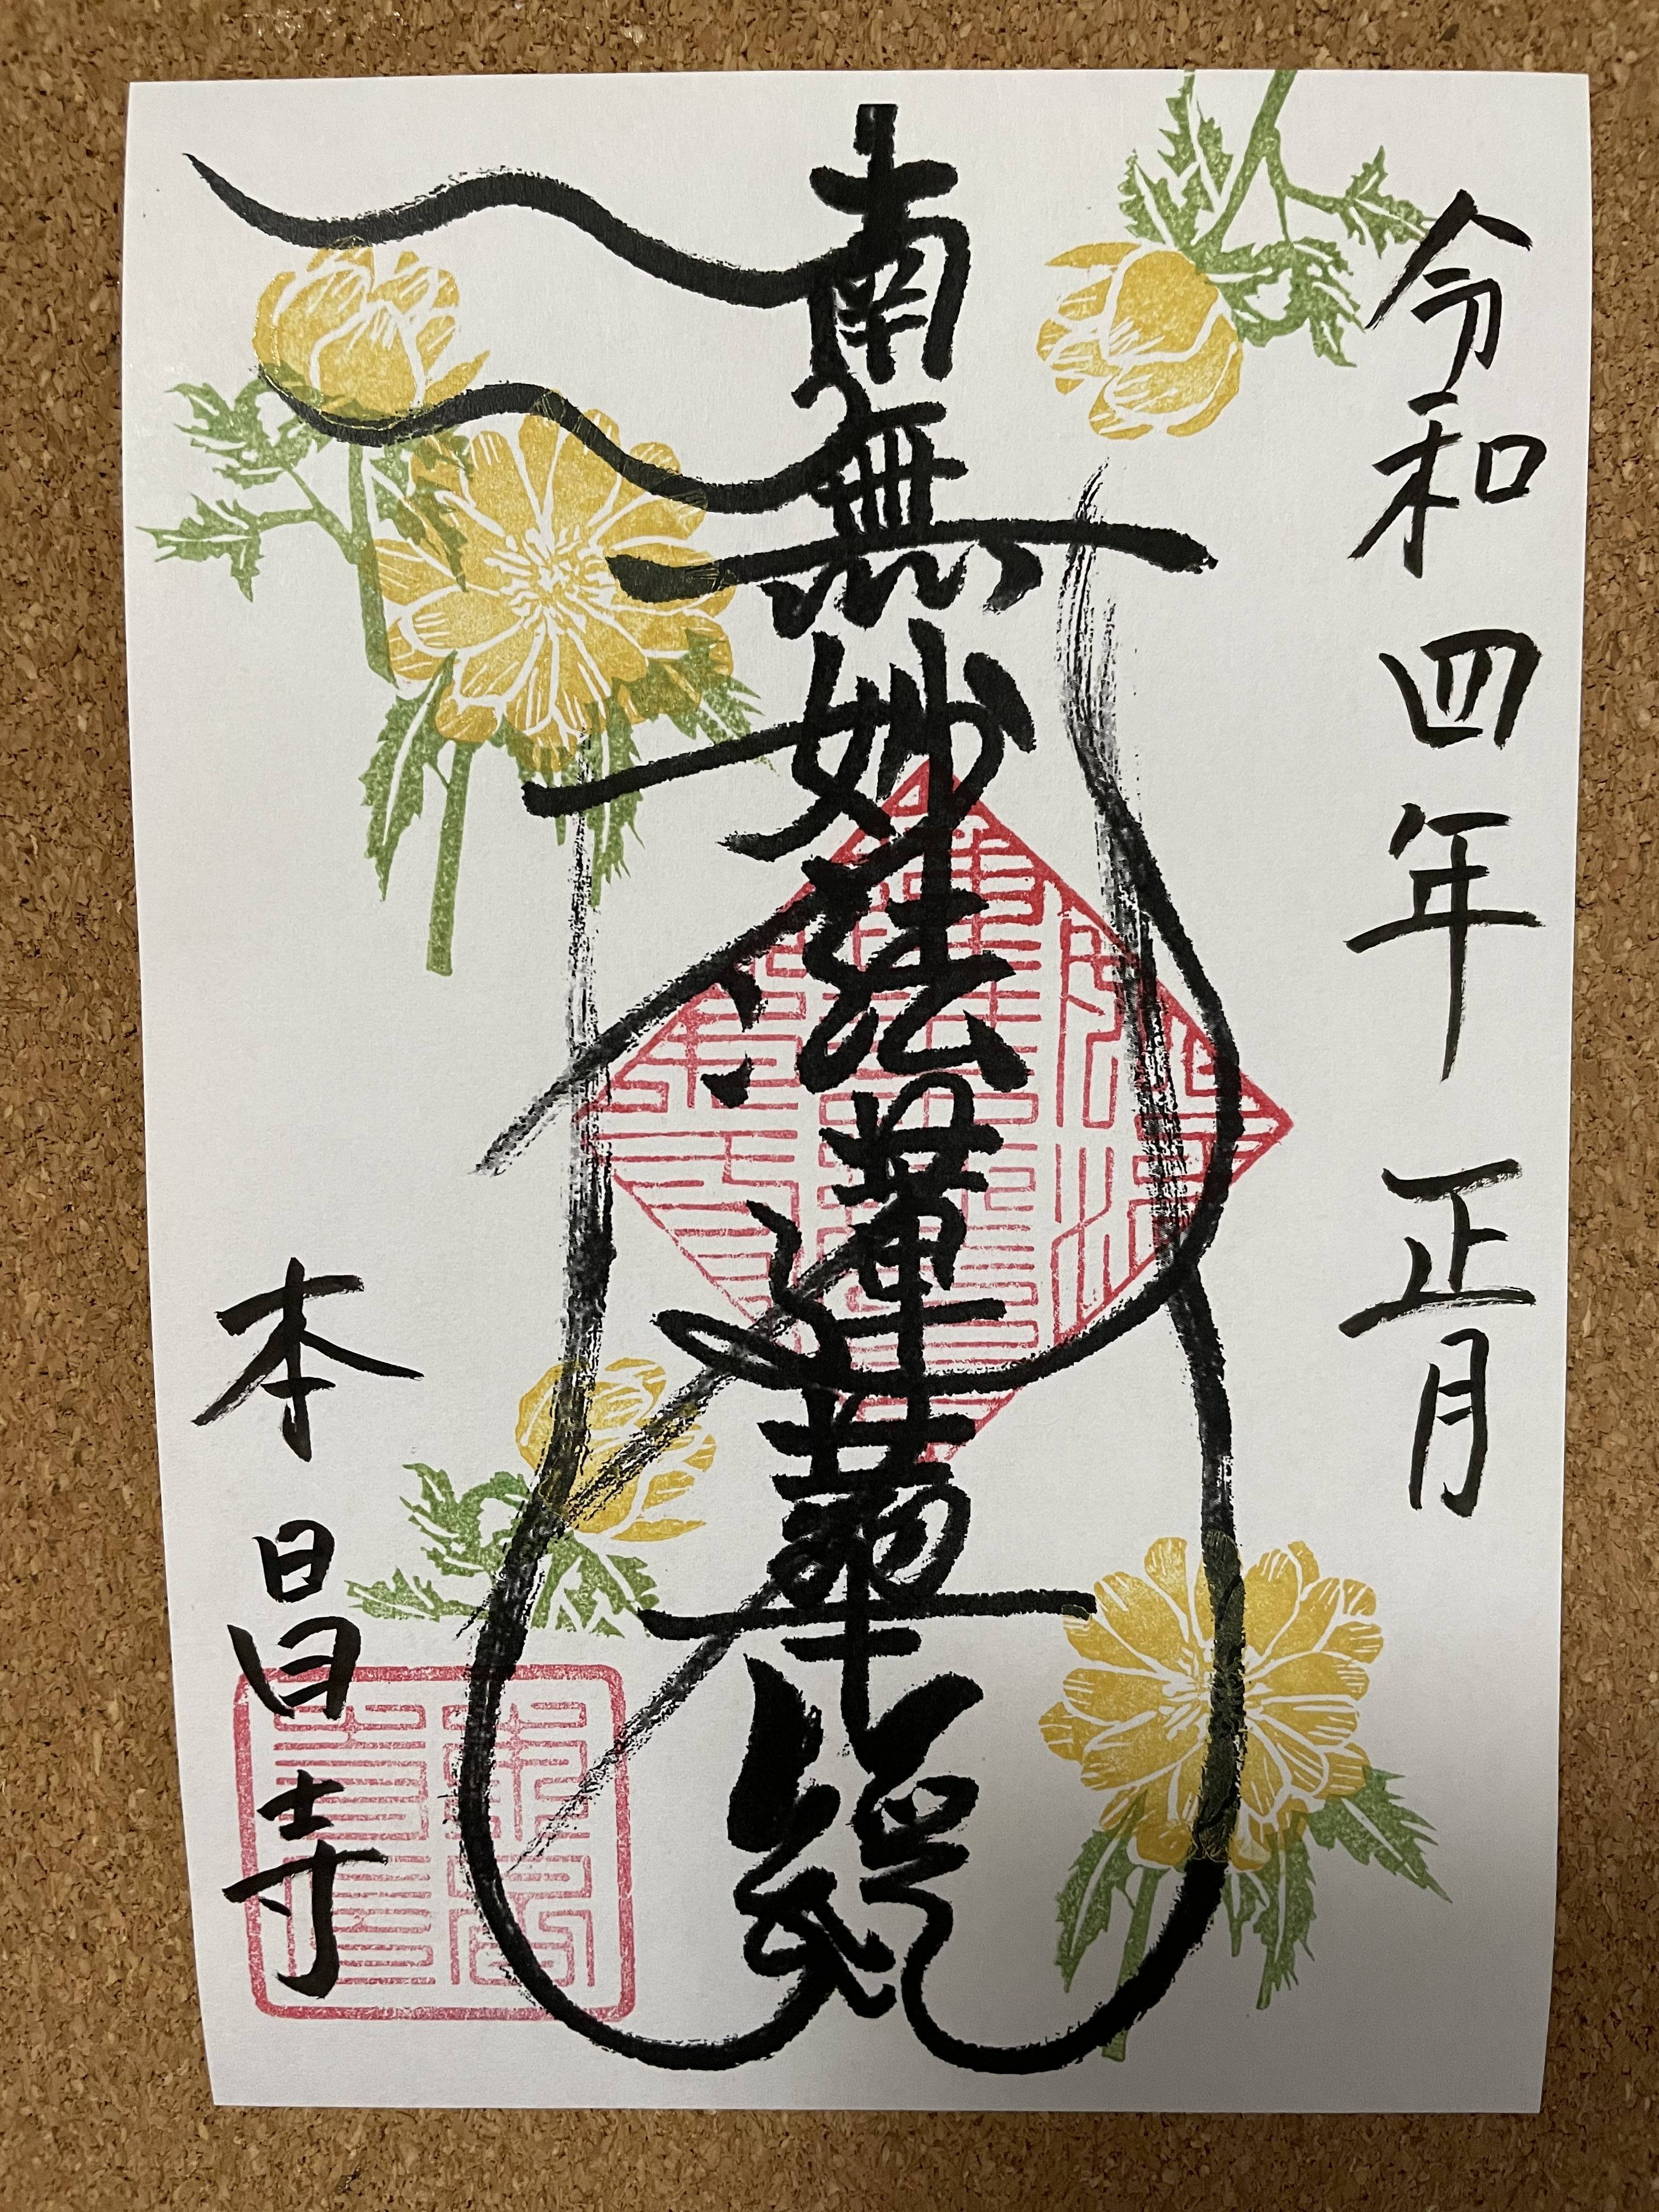 令和四年 正月
南無妙法蓮華経
本昌寺